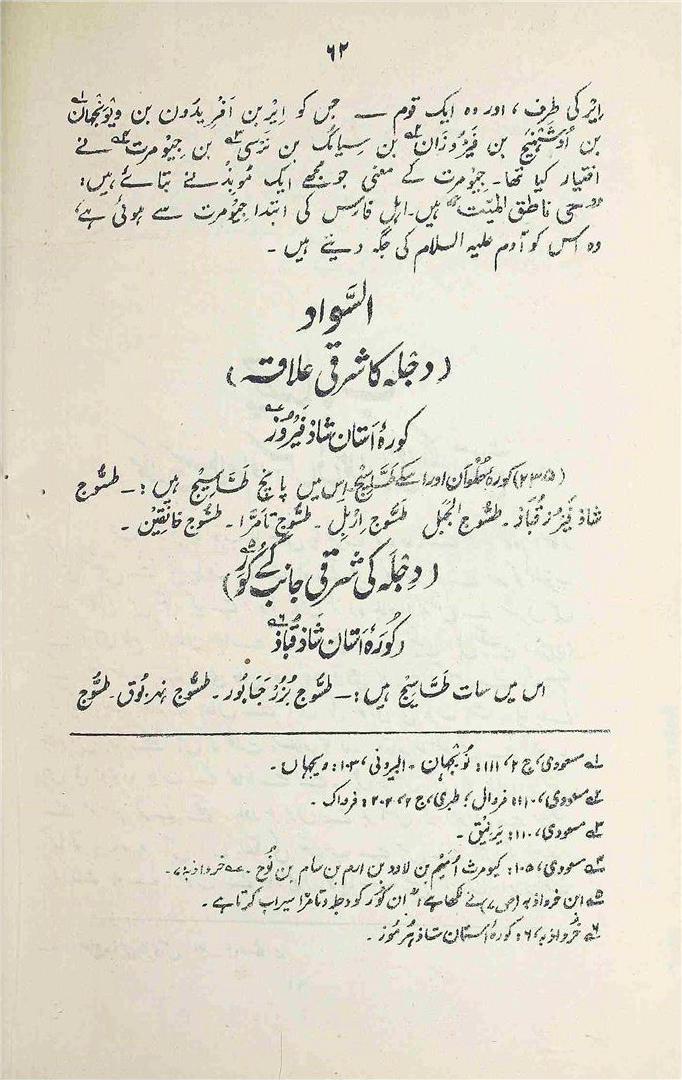 ۶۲
ایر کی طرف، اور وہ ایک قوم — جس کو ایر بن اَفریدُون بن ویونجہان؎۱
بن اُوشہنج بن فَیرُوزان؎۲ بن سیامک بن نرسی؎۳ بن جیومرت؎۴ نے
اختیار کیا تھا۔ جیومرت کے معنی جو مجھے ایک مُوبذ نے بتائے ہیں:
"حی ناطق المیّت" ہیں۔ اہلِ فارس کی ابتدا جیومرت سے ہوئی ہے،
وہ اس کو آدم علیہ السلام کی جگہ دیتے ہیں۔
السَّواد
(دجلہ کا شرقی علاقہ)
کورۂ اَستان شاذ فَیرُوز
(۲۳۵) کورۂ حُلْوَان اور اسکے طَسَاسِیج اس میں پانچ طَسَاسِیج ہیں:۔ طسُّوج
شاذ فَیرُوز قُباذ۔ طسُّوج الجَبَل طسُّوج اِربِل۔ طسُّوج تامَرّا۔ طسُّوج خانِقِین۔
(دِجلَہ کی شرقی جانب کے کُوَر؎۵)
(کُورَۂ اَستان شَاذ قُبَاذ؎۶
اس میں سات طَسَاسِیج ہیں:۔ طسُّوج بُزُرجَسابُور۔ طسُّوج نہر بُوق۔ طسُّوج
؎۱ مسعودی، ج ۲، ۱۱۱: نُونجہان۔ البیرونی، ۱۰۳: ویجہان۔
؎۲ مسعودی، ۱۱۰: فروال؛ طبری، ج ۱، ۲۰۲: فرواک۔
؎۳ مسعودی، ۱۱۰: یَرنیق۔
؎۴ مسعودی، ۱۰۵: کیومرث اُمَیم بن لاود بن ارم بن سام بن نُوح۔ خرداذبہ ۷۔
؎۵ ابن خرداذبہ (ص ۷) نے لکھا ہے: "ان کُوَر کو دجلہ و تامَرّا سیراب کرتا ہے۔
؎۶ خُرداذبہ، ۶: کورۂ اُستان شاذ ہُرمُوز۔